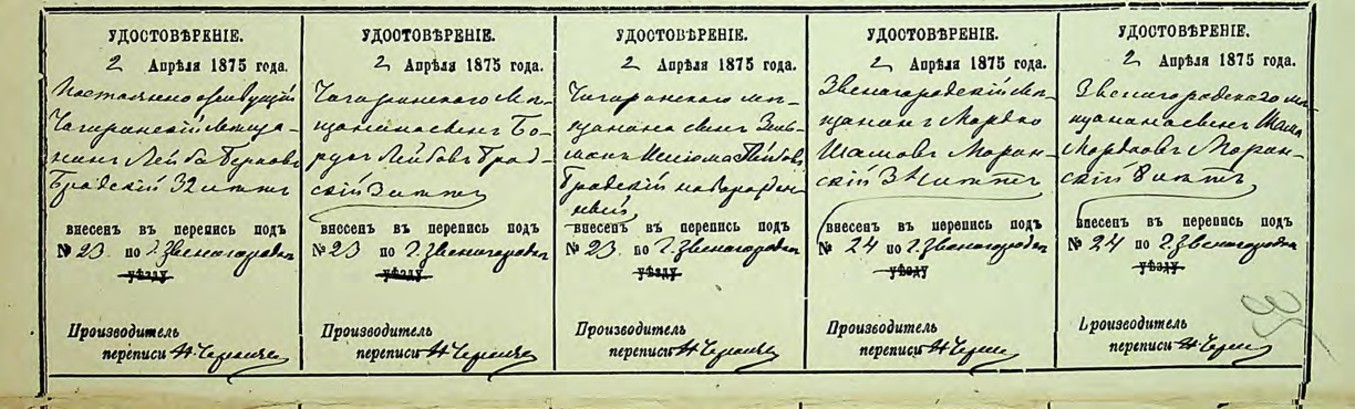 УДОСТОВѢРЕНІЕ.
2 Апрѣля 1875 года.
Постоянно живущій
Чигиринскій мѣща-
нинъ Лейба Берковъ
Бродскій 32 лѣтъ
внесенъ въ перепись подъ
№ 23 по г. Звенигородкѣ
уѣзду
Производитель
переписи
УДОСТОВѢРЕНІЕ.
2 Апрѣля 1875 года.
Чигиринскаго мѣ-
щанина сынъ Бо-
рухъ Лейбовъ Брод-
скій 3 лѣтъ
внесенъ въ перепись подъ
№ 23 по г. Звенигородкѣ
уѣзду
Производитель
переписи
УДОСТОВѢРЕНІЕ.
2 Апрѣля 1875 года.
Чигиринскаго мѣ-
щанина сынъ Зель-
манъ Лейбовъ
Бродскій новорожден-
ный
внесенъ въ перепись подъ
№ 23 по г. Звенигородкѣ
уѣзду
Производитель
переписи
УДОСТОВѢРЕНІЕ.
2 Апрѣля 1875 года.
Звенигородскій мѣ-
щанинъ Мордко
Шамовъ Моран-
скій 34 лѣтъ
внесенъ въ перепись подъ
№ 24 по г. Звенигородкѣ
уѣзду
Производитель
переписи
УДОСТОВѢРЕНІЕ.
2 Апрѣля 1875 года.
Звенигородскаго мѣ-
щанина сынъ
Мордковъ Моран-
скій 8 лѣтъ
внесенъ въ перепись подъ
№ 24 по г. Звенигородкѣ
уѣзду
Производитель
переписи